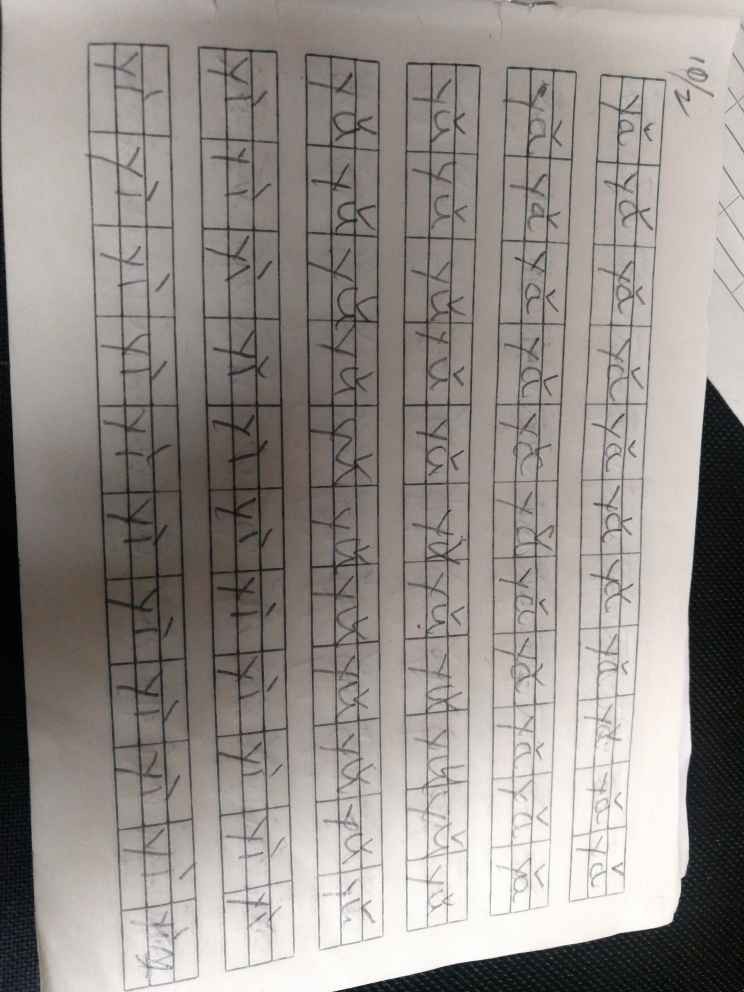 10/2
yǎ yǎ yǎ yǎ yǎ yǎ yǎ yǎ yǎ yǎ yǎ
yǎ yǎ yǎ yǎ yǎ yǎ yǎ yǎ yǎ yǎ yǎ
yǔ yǔ yǔ yǔ yǔ yǔ yǔ yǔ yǔ yǔ yǔ
yǔ yǔ yǔ yǔ yǔ yǔ yǔ yǔ yǔ yǔ yǔ
yì yì yì yǐ yì yì yì yì yì yì yì
yì yì yì yì yì yì yì yì yì yì